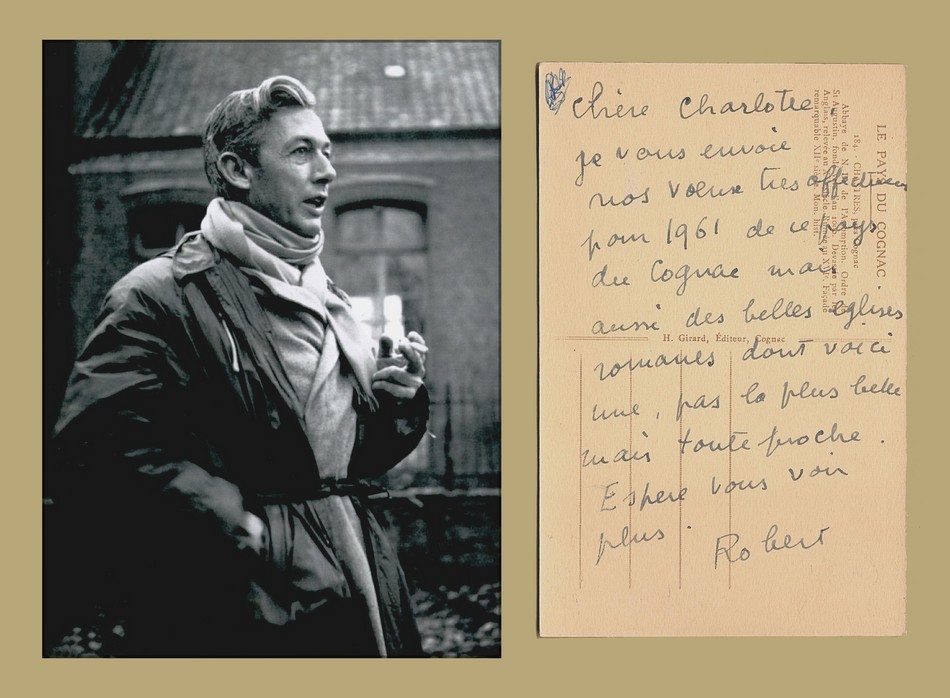 Chère Charlotte
je vous envoie
nos vœux très affectueux
pour 1961 de ce pays
du Cognac mais
aussi des belles églises
romanes dont voici
une, pas la plus belle
mais toute proche.
Espère vous voir
plus.
Robert
LE PAYS DU COGNAC
184. - CHATRES, Cognac
Abbaye de N. D. de l'Assomption. Ordre
St Augustin, fondée au Devastée par
Anglais, relevée au XVIIe Façade
remarquable XIIe siècle. Mon. hist.
H. Girard, Éditeur, Cognac